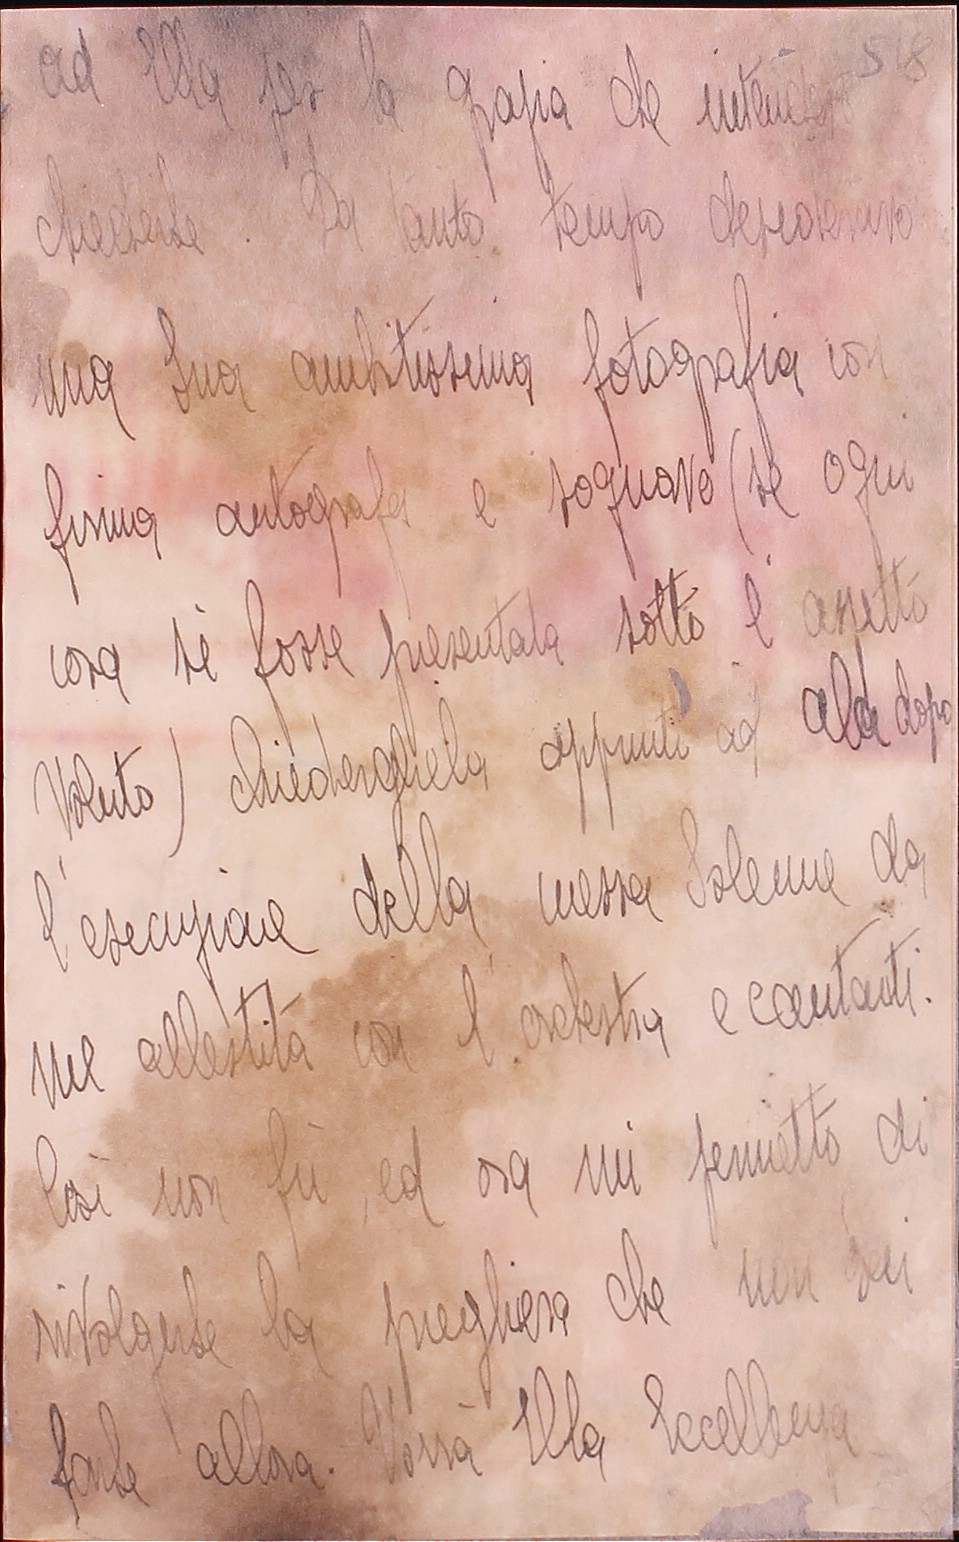 518
ad Ella per la grazia che intendevo
chiederle. Da tanto tempo desideravo
una Sua ambitissima fotografia con
firma autografa e sognavo (se ogni
cosa si fosse presentata sotto l'aspetto
voluto) chiedergliela appunto ad dopo
l'esecuzione della messa Solenne da
me allestita con l'orchestra e cantanti.
Così non fù, ed ora mi permetto di
rivolgerle la preghiera che non
farle allora. Vorrà Ella Eccellenza